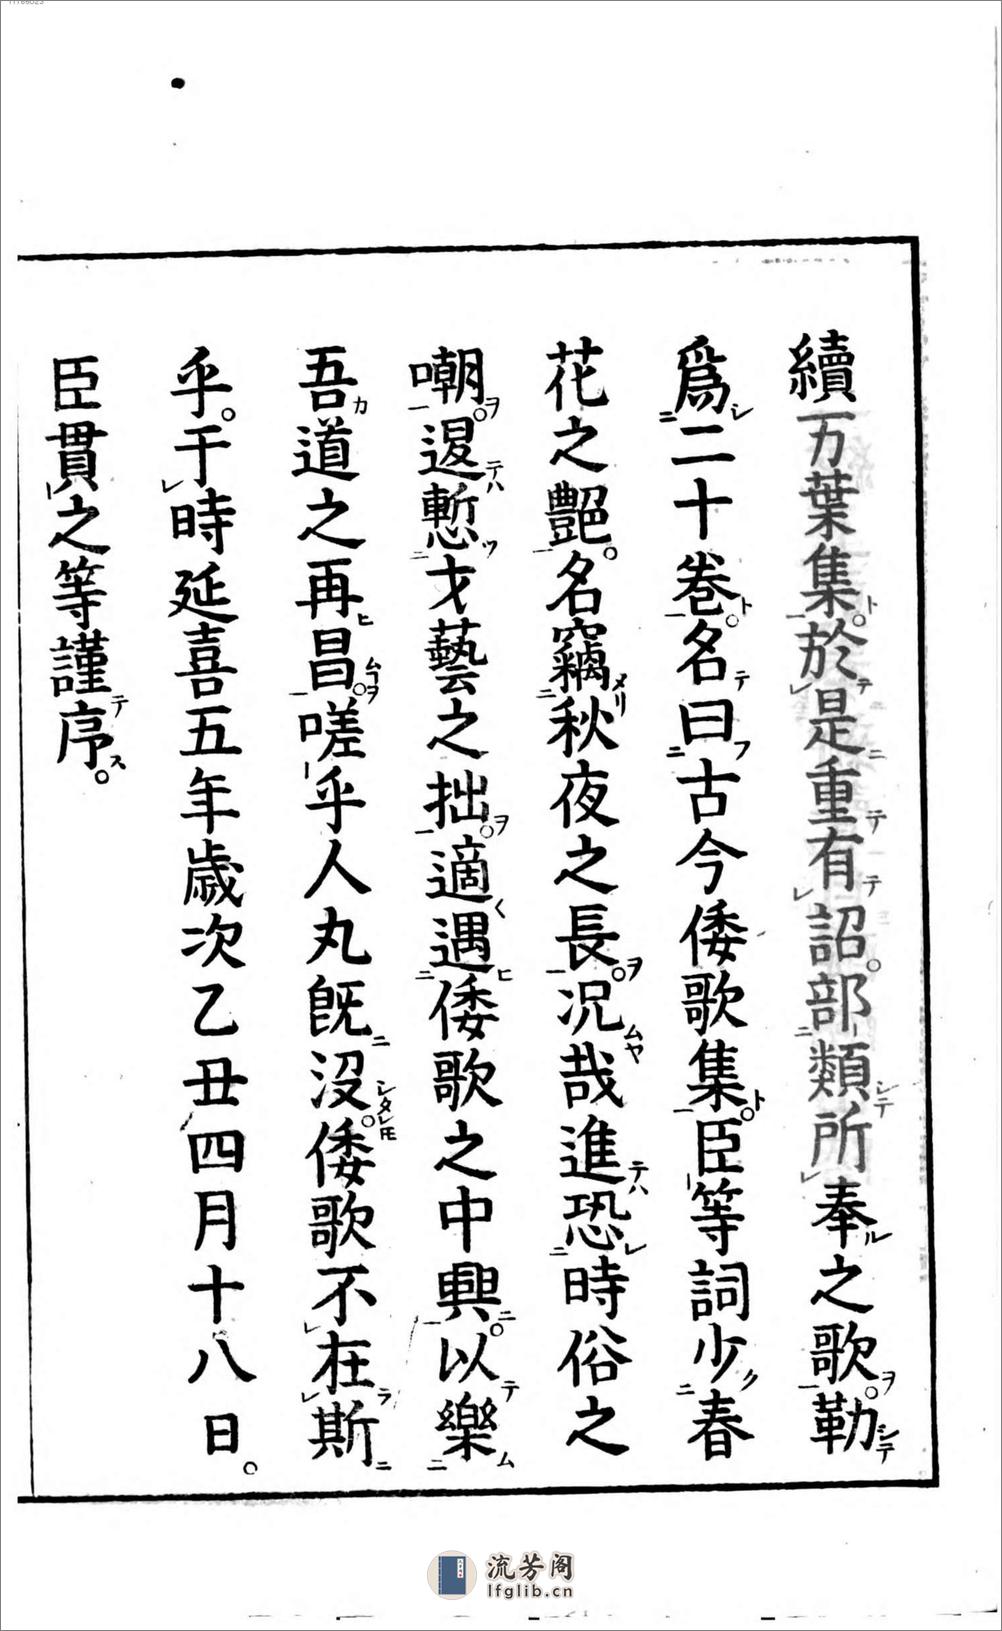 續万葉集於是重有詔部類所奉之歌勒
爲二十卷名曰古今倭歌集臣等詞少春
花之艷名竊秋夜之長况哉進恐時俗之
嘲退慙才藝之拙適遇倭歌之中興以樂
吾道之再昌嗟乎人丸既没倭歌不在斯
乎于時延喜五年歲次乙丑四月十八日
臣貫之等謹序
流芳阁
lfglib.cn